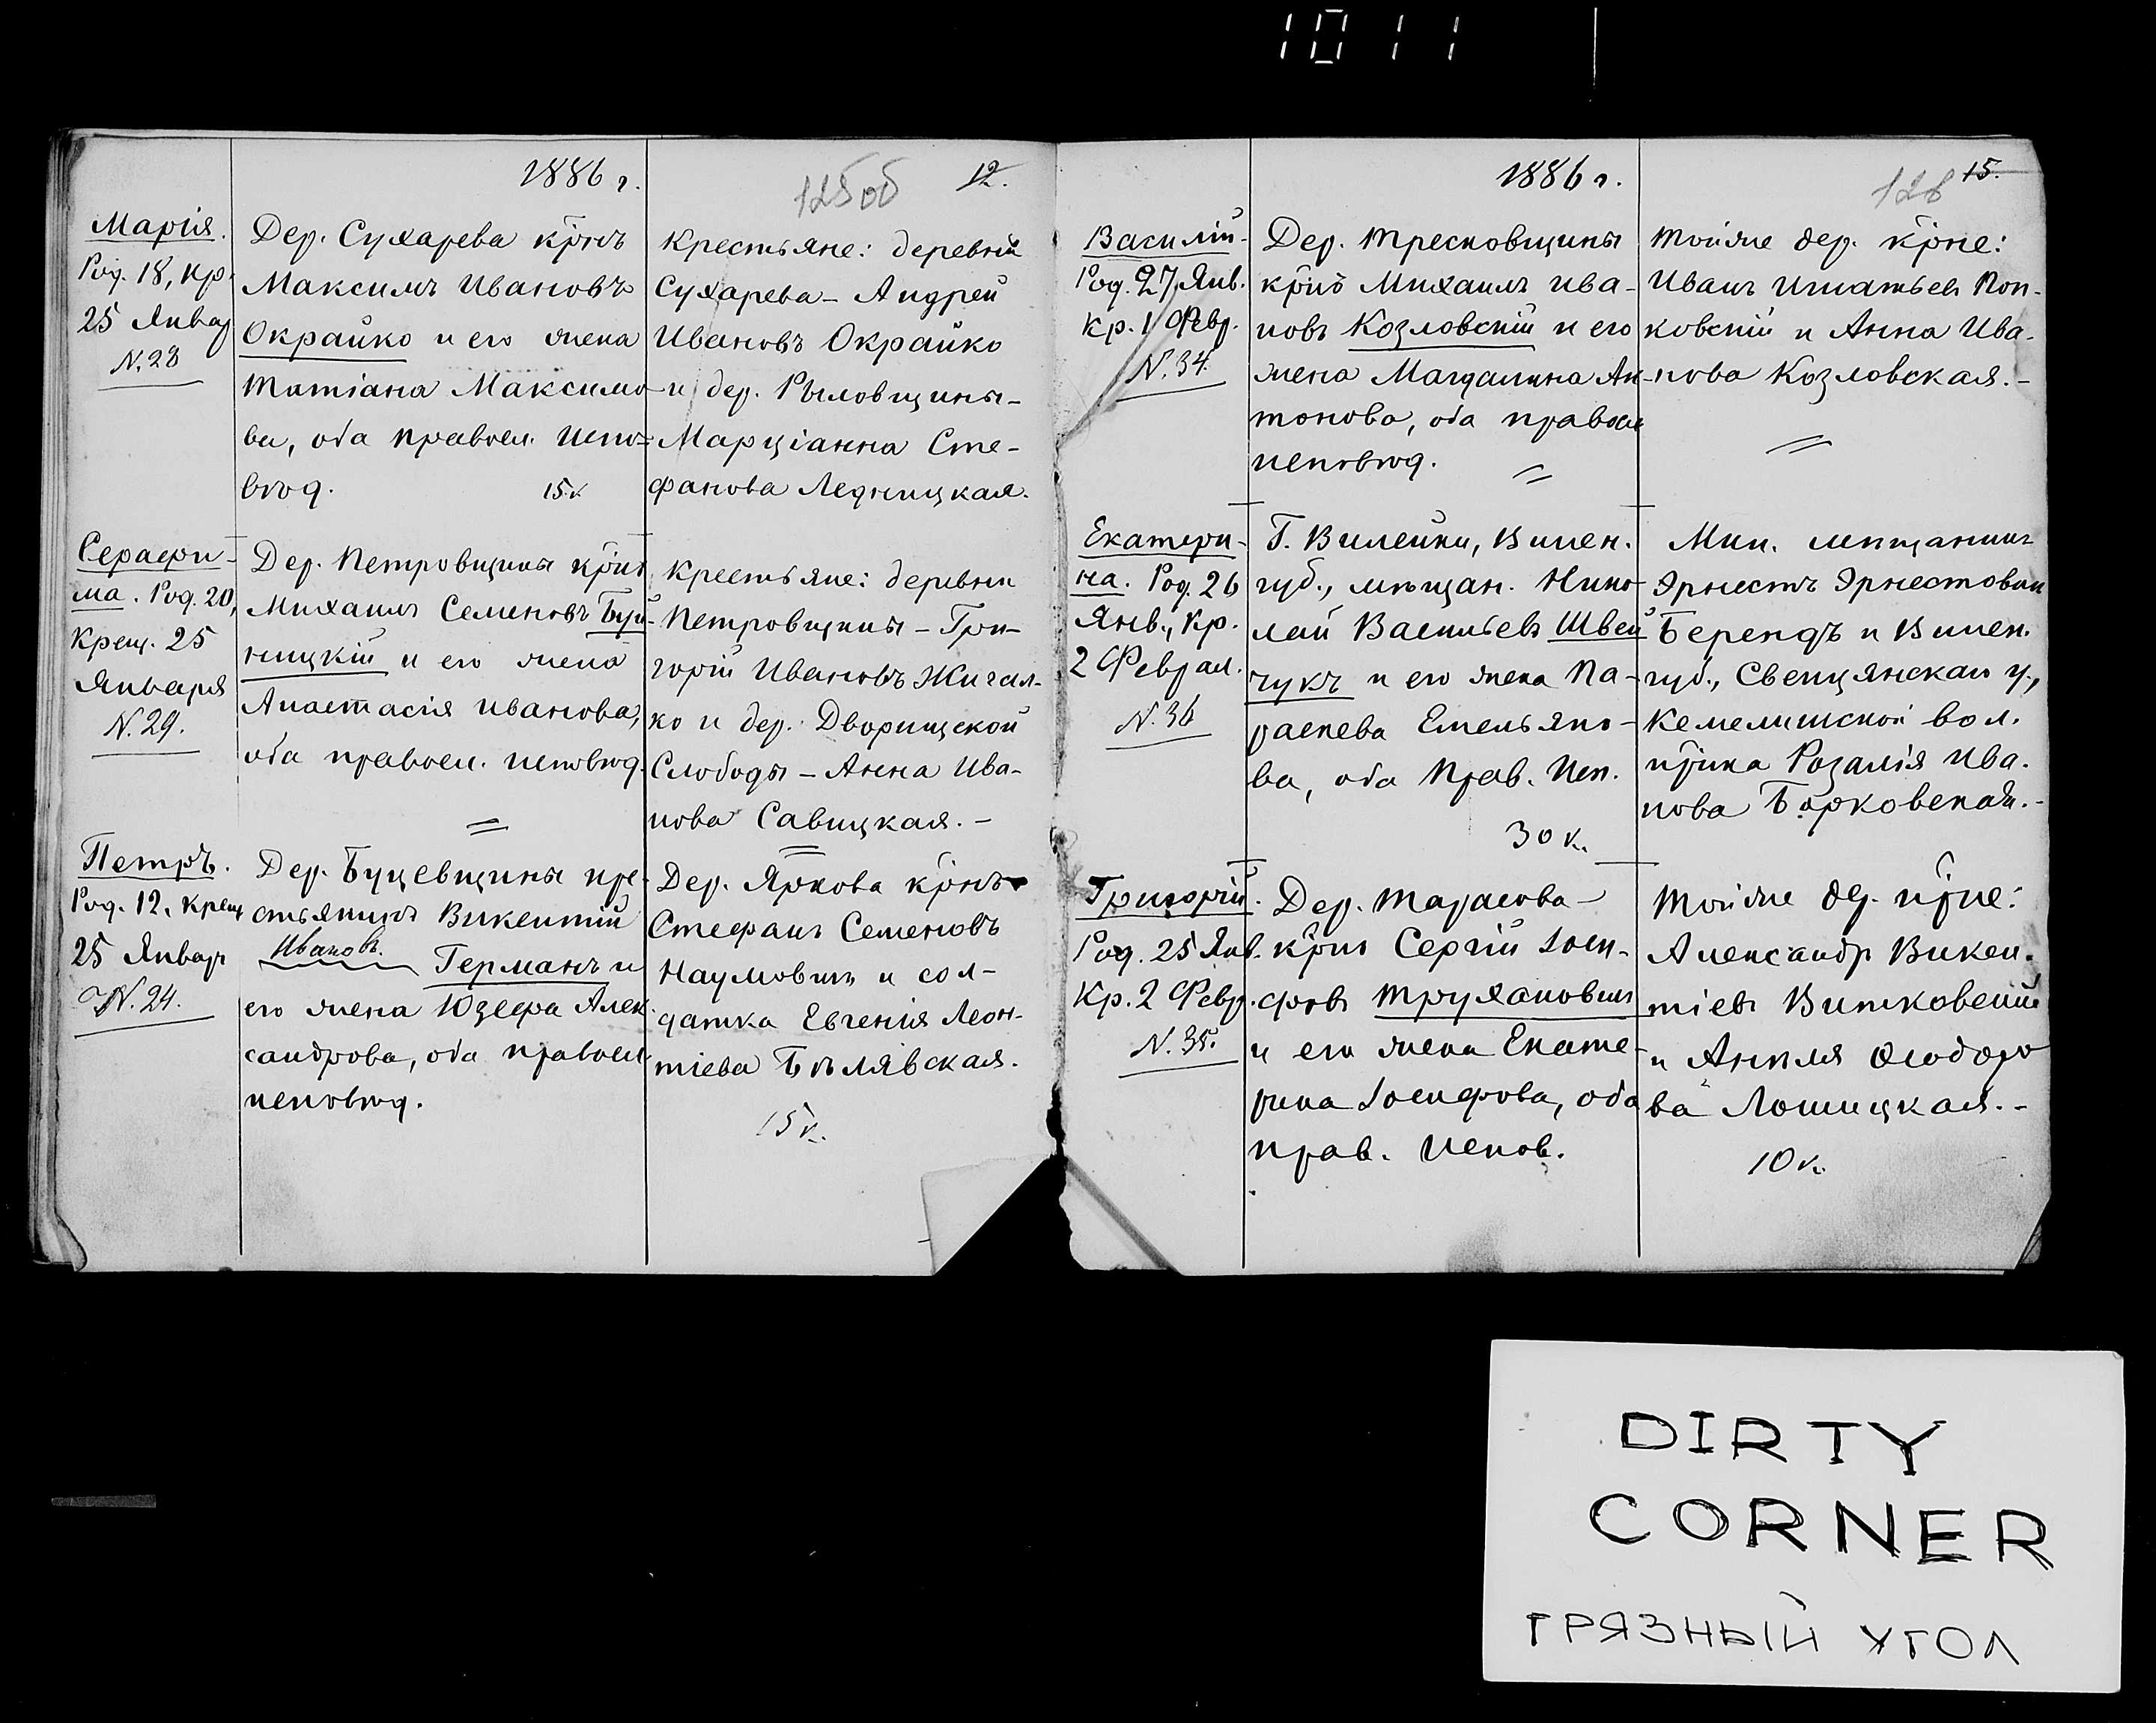 1011
1886 г.
125об
12.
Марія.
Род. 18, кр.
25 Январ
N. 28
Дер. Сухарева крнъ
Максимъ Ивановъ
Окрайко и его жена
Татіана Максимо
ва, оба правосл. испо-
вѣд. 15 к
Крестьяне: деревни
Сухарева – Андрей
Ивановъ Окрайко
и дер. Рыловщины –
Марціанна Сте-
фанова Ледницкая.
Серафи-
ма. Род. 20,
Крещ. 25
Января
N. 29.
Дер. Петровщины крнъ
Михаилъ Семеновъ Буй-
ницкій и его жена
Анастасія Иванова,
оба правосл. исповѣд.
Крестьяне: деревни
Петровщины – Гри-
горій Ивановъ Жигал-
ко и дер. Дворищской
Слободы – Анна Ива-
нова Савицкая. –
Петръ.
Род. 12, крещ
25 Январ
N. 24.
Дер. Буцевщины кре-
стьянинъ Викентій
Ивановъ Германъ и
его жена Юзефа Алек
сандрова, оба правосл
исповѣд.
Дер. Яркова крнъ
Стефанъ Семеновъ
Наумовичъ и сол-
датка Евгенія Леон-
тіева Бѣлявская.
15 к.
1886 г.
126
15.
Василій.
Род. 27 Янв.
Кр. 1 Февр.
N. 34.
Дер. Тресковщины
крнъ Михаилъ Ива-
новъ Козловскій и его
жена Магдалина Ан-
тонова, оба правосл
исповѣд.
Тойже дер. крне:
Иванъ Игнатьевъ Поп-
ковскій и Анна Ива-
нова Козловская. –
Екатери-
на. Род. 26
Янв., Кр.
2 Феврал.
N. 36
Г. Вилейки, Вилен.
губ., мѣщан. Нико
лай Васильевъ Швей
чукъ и его жена Па-
раскева Емельяно-
ва, оба Прав. Исп.
30 к.
Мин. мѣщанинъ
Эрнестъ Эрнестовъ
Берендъ и Вилен.
губ., Свенцянскаго у.,
Кемелишской вол.
крнка Розалія Ива.
нова Борковская. –
Григорій.
Род. 25 Янв.
Кр. 2 Февр.
N. 35.
Дер. Тарасова –
крнъ Сергій Іоси-
фовъ Трухановичъ
и его жена Екате-
рина Іосифова, оба
прав. испов.
Тойже дер. крне:
Александр Викен.
тіевъ Витковскій
и Анна Ѳеодоро
ва Лошицкая. –
10 к.
DIRTY
CORNER
ГРЯЗНЫЙ УГОЛ